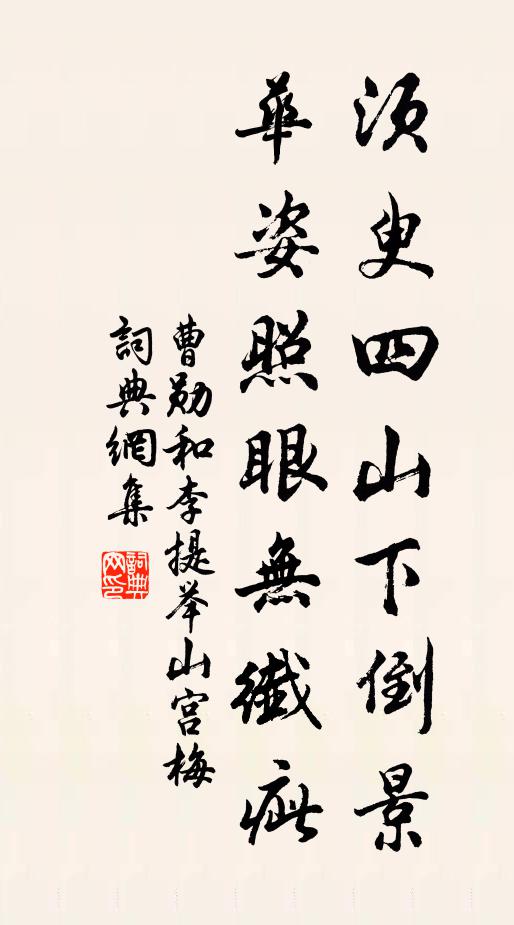 須臾四山下倒景
華姿照眼無纖疵
曹勛和李提举山宫梅
詞典網集
詞典
网印